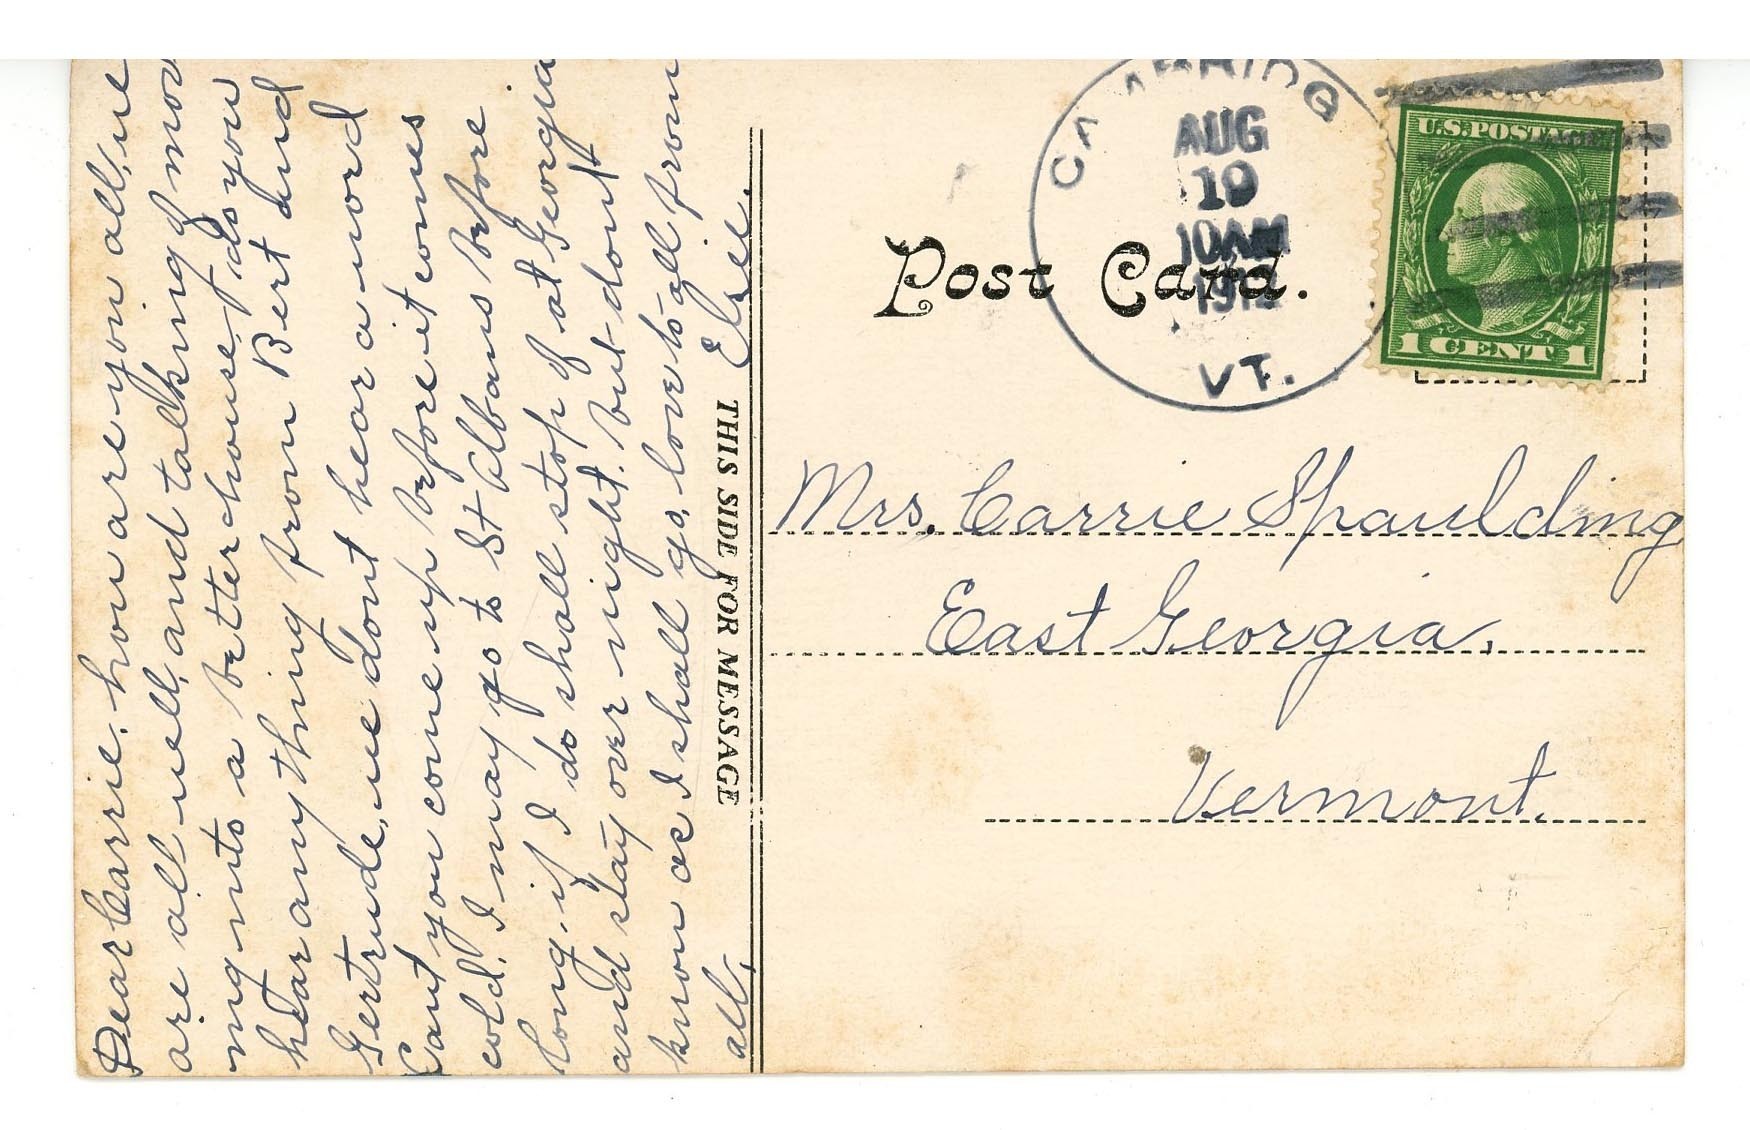 Dear Carrie. how are you all, we
are all well, and talking of mov
ing into a better house, do you
hear any thing from Bert and
Gertrude, we dont hear a word
Cant you come up before it comes
cold. I may go to St Albans before
long, if I do shall stop of at Georgia
and stay over night. but dont
know as I shall go, love to all from
all, Elsie.
THIS SIDE FOR MESSAGE
CAMBRIDG
AUG
19
10AM
VT.
U.S.POSTAGE
1 CENT 1
Post Card.
Mrs. Carrie Spaulding
East Georgia,
Vermont.